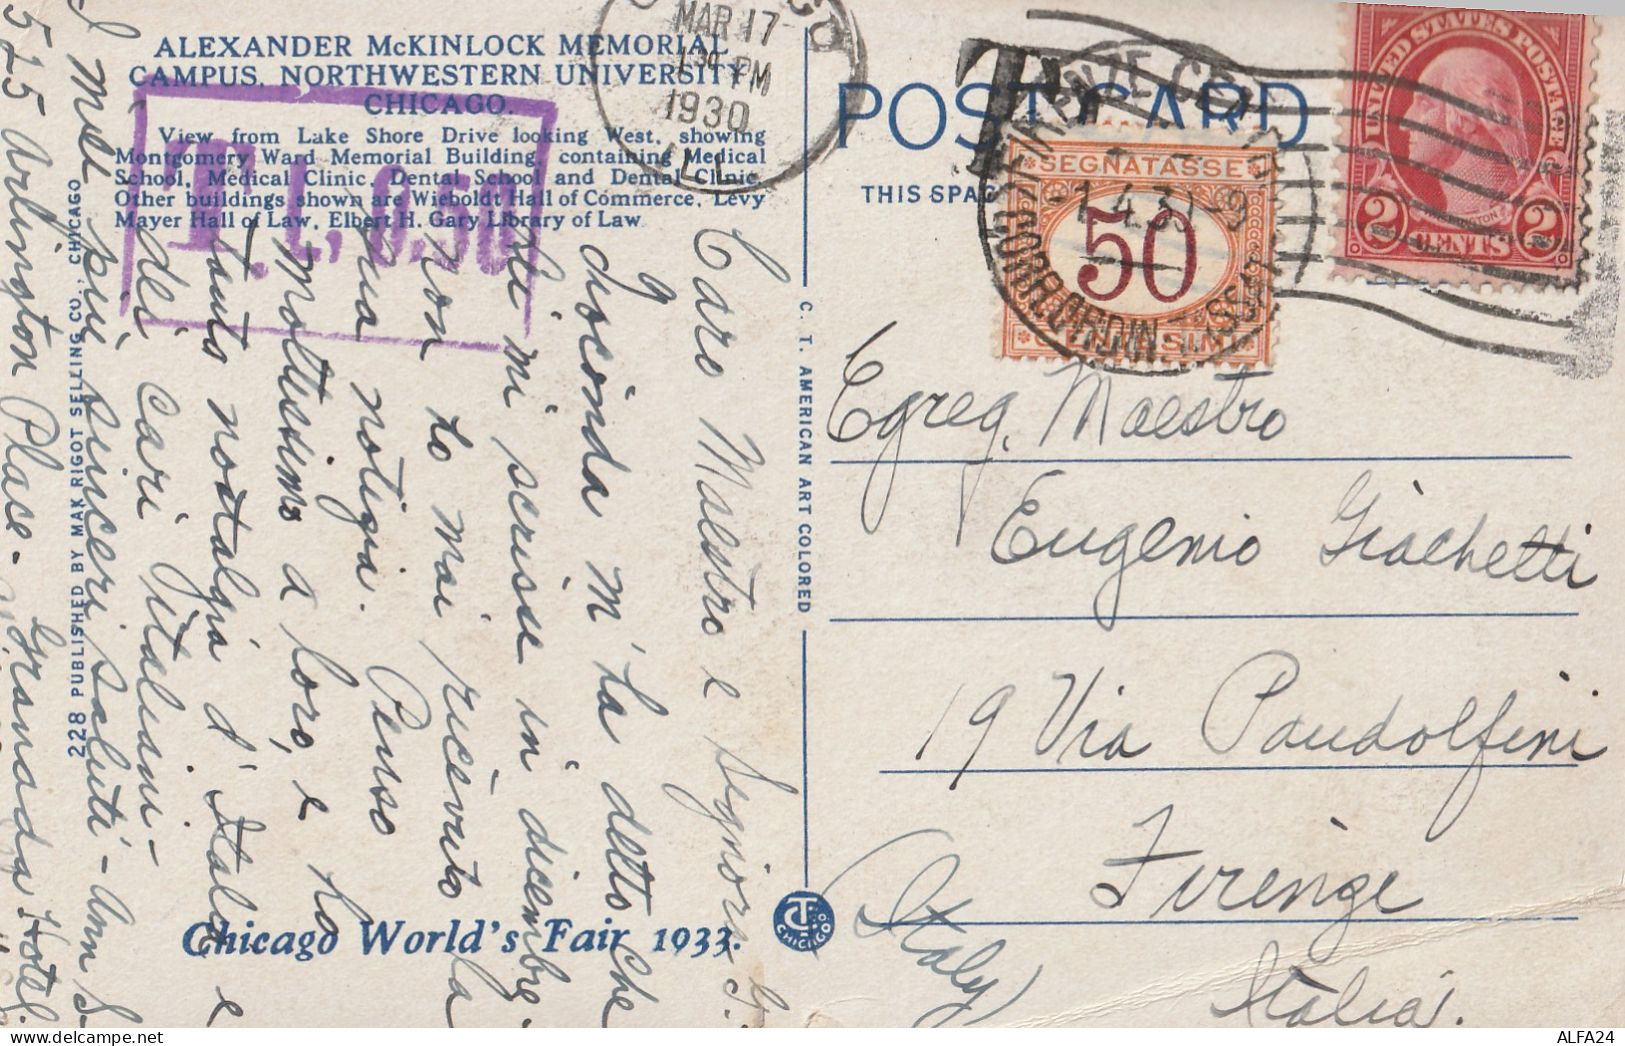 ALEXANDER McKINLOCK MEMORIAL
CAMPUS, NORTHWESTERN UNIVERSITY
CHICAGO.
View from Lake Shore Drive looking West, showing
Montgomery Ward Memorial Building, containing Medical
School, Medical Clinic, Dental School and Dental Clinic.
Other buildings shown are Wieboldt Hall of Commerce, Levy
Mayer Hall of Law, Elbert H. Gary Library of Law
T. L. 0.50
MAR 17
PM
1930
ILL.
POST CARD
THIS SPAC
T
FIRENZE CENTRO
1.4.3 -9
SEGNATASSE
50
CENTESIMI
UNITED STATES POSTAGE
WASHINGTON
2 CENTS 2
Caro Maestro e Signora G.
Gioconda m'ha detto che
le mi scrisse in dicembre
non ho mai ricevuto la
sua notizia. Penso
moltissimo a loro, e ho
tanto nostalgia d'Italia e
dei cari Italiani-
I miei più sinceri saluti - Ann S-
Granada Hotel
525 Arlington Place-
228 PUBLISHED BY MAX RIGOT SELLING CO., CHICAGO
C. T. AMERICAN ART COLORED
Chicago World's Fair 1933.
CT
CHICAGO
Egreg. Maestro
Eugenio Giachetti
19 Via Pandolfini
Firenze
(Italy)
Italia.
ALFA24